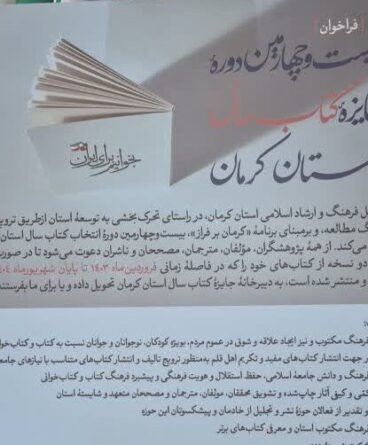 [فراخوان]
ست‌وچهارمین دورهٔ
ایزهٔ کتاب سال
ستان کرمان
بخوانیم برای ایران
ل فرهنگ و ارشاد اسلامی استان کرمان، در راستای تحرک‌بخشی به توسعهٔ استان ازطریق ترویج
گ مطالعه، و برمبنای برنامهٔ «کرمان بر فراز»، بیست‌وچهارمین دورهٔ انتخاب کتاب سال استان
می‌کند. از همهٔ پژوهشگران، مؤلفان، مترجمان، مصححان و ناشران دعوت می‌شود تا در صورت
دو نسخه از کتاب‌های خود را که در فاصلهٔ زمانی فروردین‌ماه ۱۴۰۳ تا پایان شهریورماه ۱۴۰۴
و منتشر شده است، به دبیرخانهٔ جایزهٔ کتاب سال استان کرمان تحویل داده و یا برای ما بفرستند
فرهنگ مکتوب و نیز ایجاد علاقه و شوق در عموم مردم، بویژه کودکان، نوجوانان و جوانان نسبت به کتاب و کتاب‌خوا
ر جهت انتشار کتاب‌های مفید و تکریم اهل قلم به‌منظور ترویج تالیف و انتشار کتاب‌های متناسب با نیازهای جامعه
فرهنگ و دانش جامعهٔ اسلامی، حفظ استقلال و هویت فرهنگی و پیشبرد فرهنگ کتاب و کتاب‌خوانی
کمّی و کیفی آثار چاپ‌شده و تشویق محققان، مولفان، مترجمان و مصححان متعهد و شایستهٔ استان
و تقدیر از فعالان حوزهٔ نشر و تجلیل از خادمان و پیشکسوتان این حوزه
فرهنگ مکتوب استان و معرفی کتاب‌های برتر